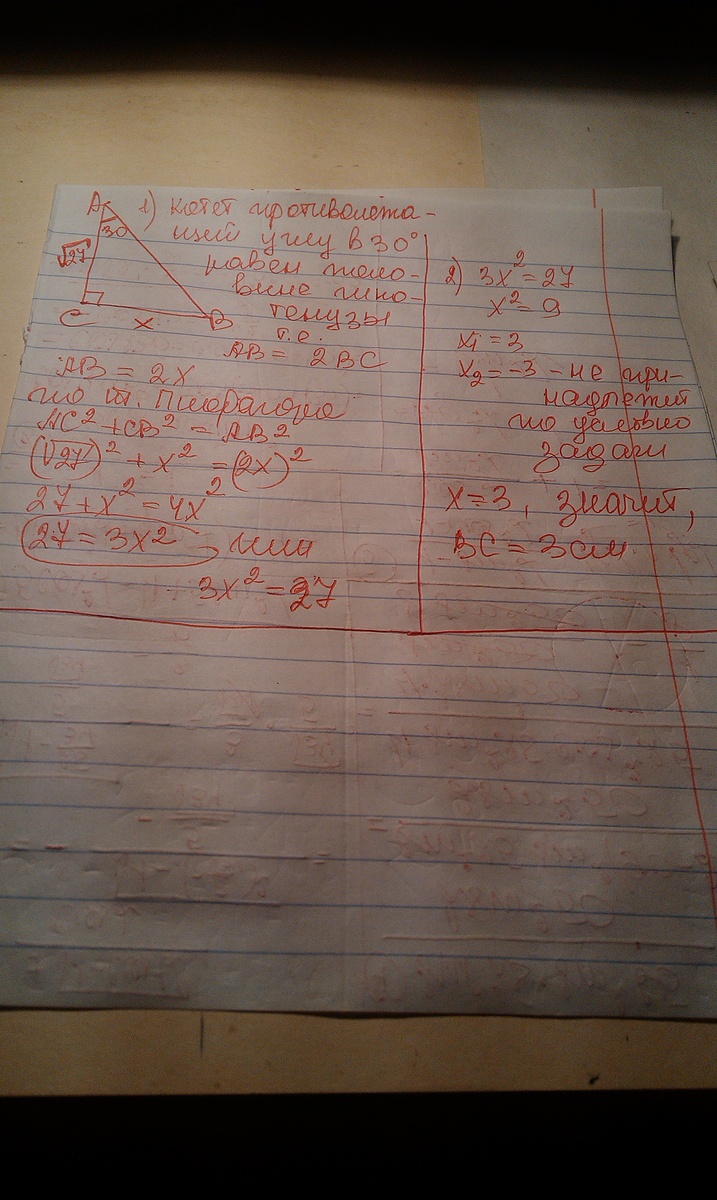 A
30
√27
C
x
B
1) Катет противолежа-
щий углу в 30°
равен поло-
вине гипо-
тенузы
т.е.
AB = 2BC
AB = 2x
по т. Пифагора
AC² + CB² = AB²
(√27)² + x² = (2x)²
27 + x² = 4x²
27 = 3x², или
3x² = 27
2) 3x² = 27
x² = 9
x₁ = 3
x₂ = -3 - не при-
надлежит
по условию
задачи
x = 3, значит,
BC = 3 см